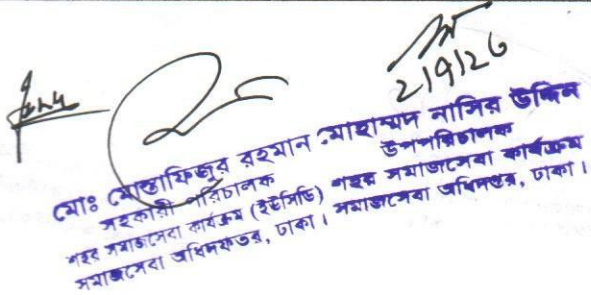 2/9/20
মোঃ মোস্তাফিজুর রহমান
সহকারী পরিচালক
শহর সমাজসেবা কার্যক্রম (ইউসিডি)
সমাজসেবা অধিদফতর, ঢাকা।
মোহাম্মদ নাসির উদ্দিন
উপপরিচালক
শহর সমাজসেবা কার্যক্রম
সমাজসেবা অধিদপ্তর, ঢাকা।